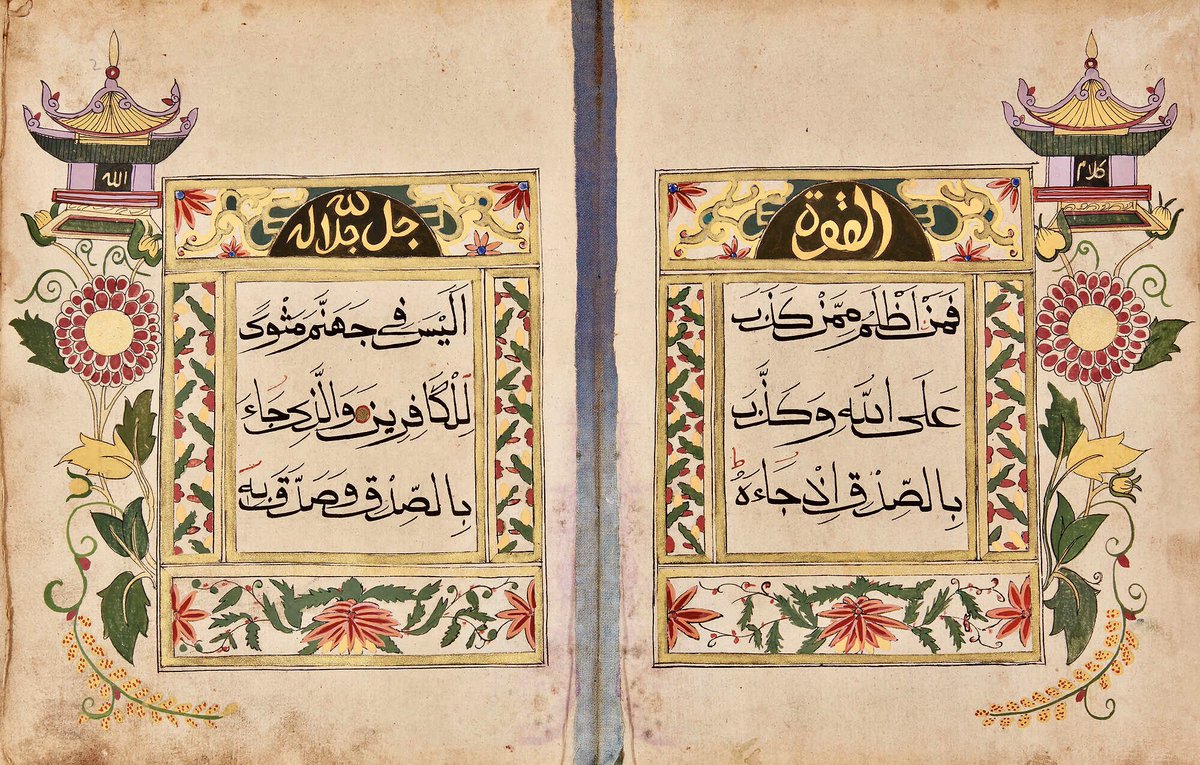 كلام
القوة
فَمَنْ اَظْلَمُ مِمَّنْ كَذَبَ
عَلَى اللّٰهِ وَكَذَّبَ
بِالصِّدْقِ اِذْ جَاءَهُ ط
الله
لله جل جلاله
اَلَيْسَ فِي جَهَنَّمَ مَثْوًى
لِلْكَافِرِينَ وَالَّذِي جَاءَ
بِالصِّدْقِ وَصَدَّقَ بِهِ